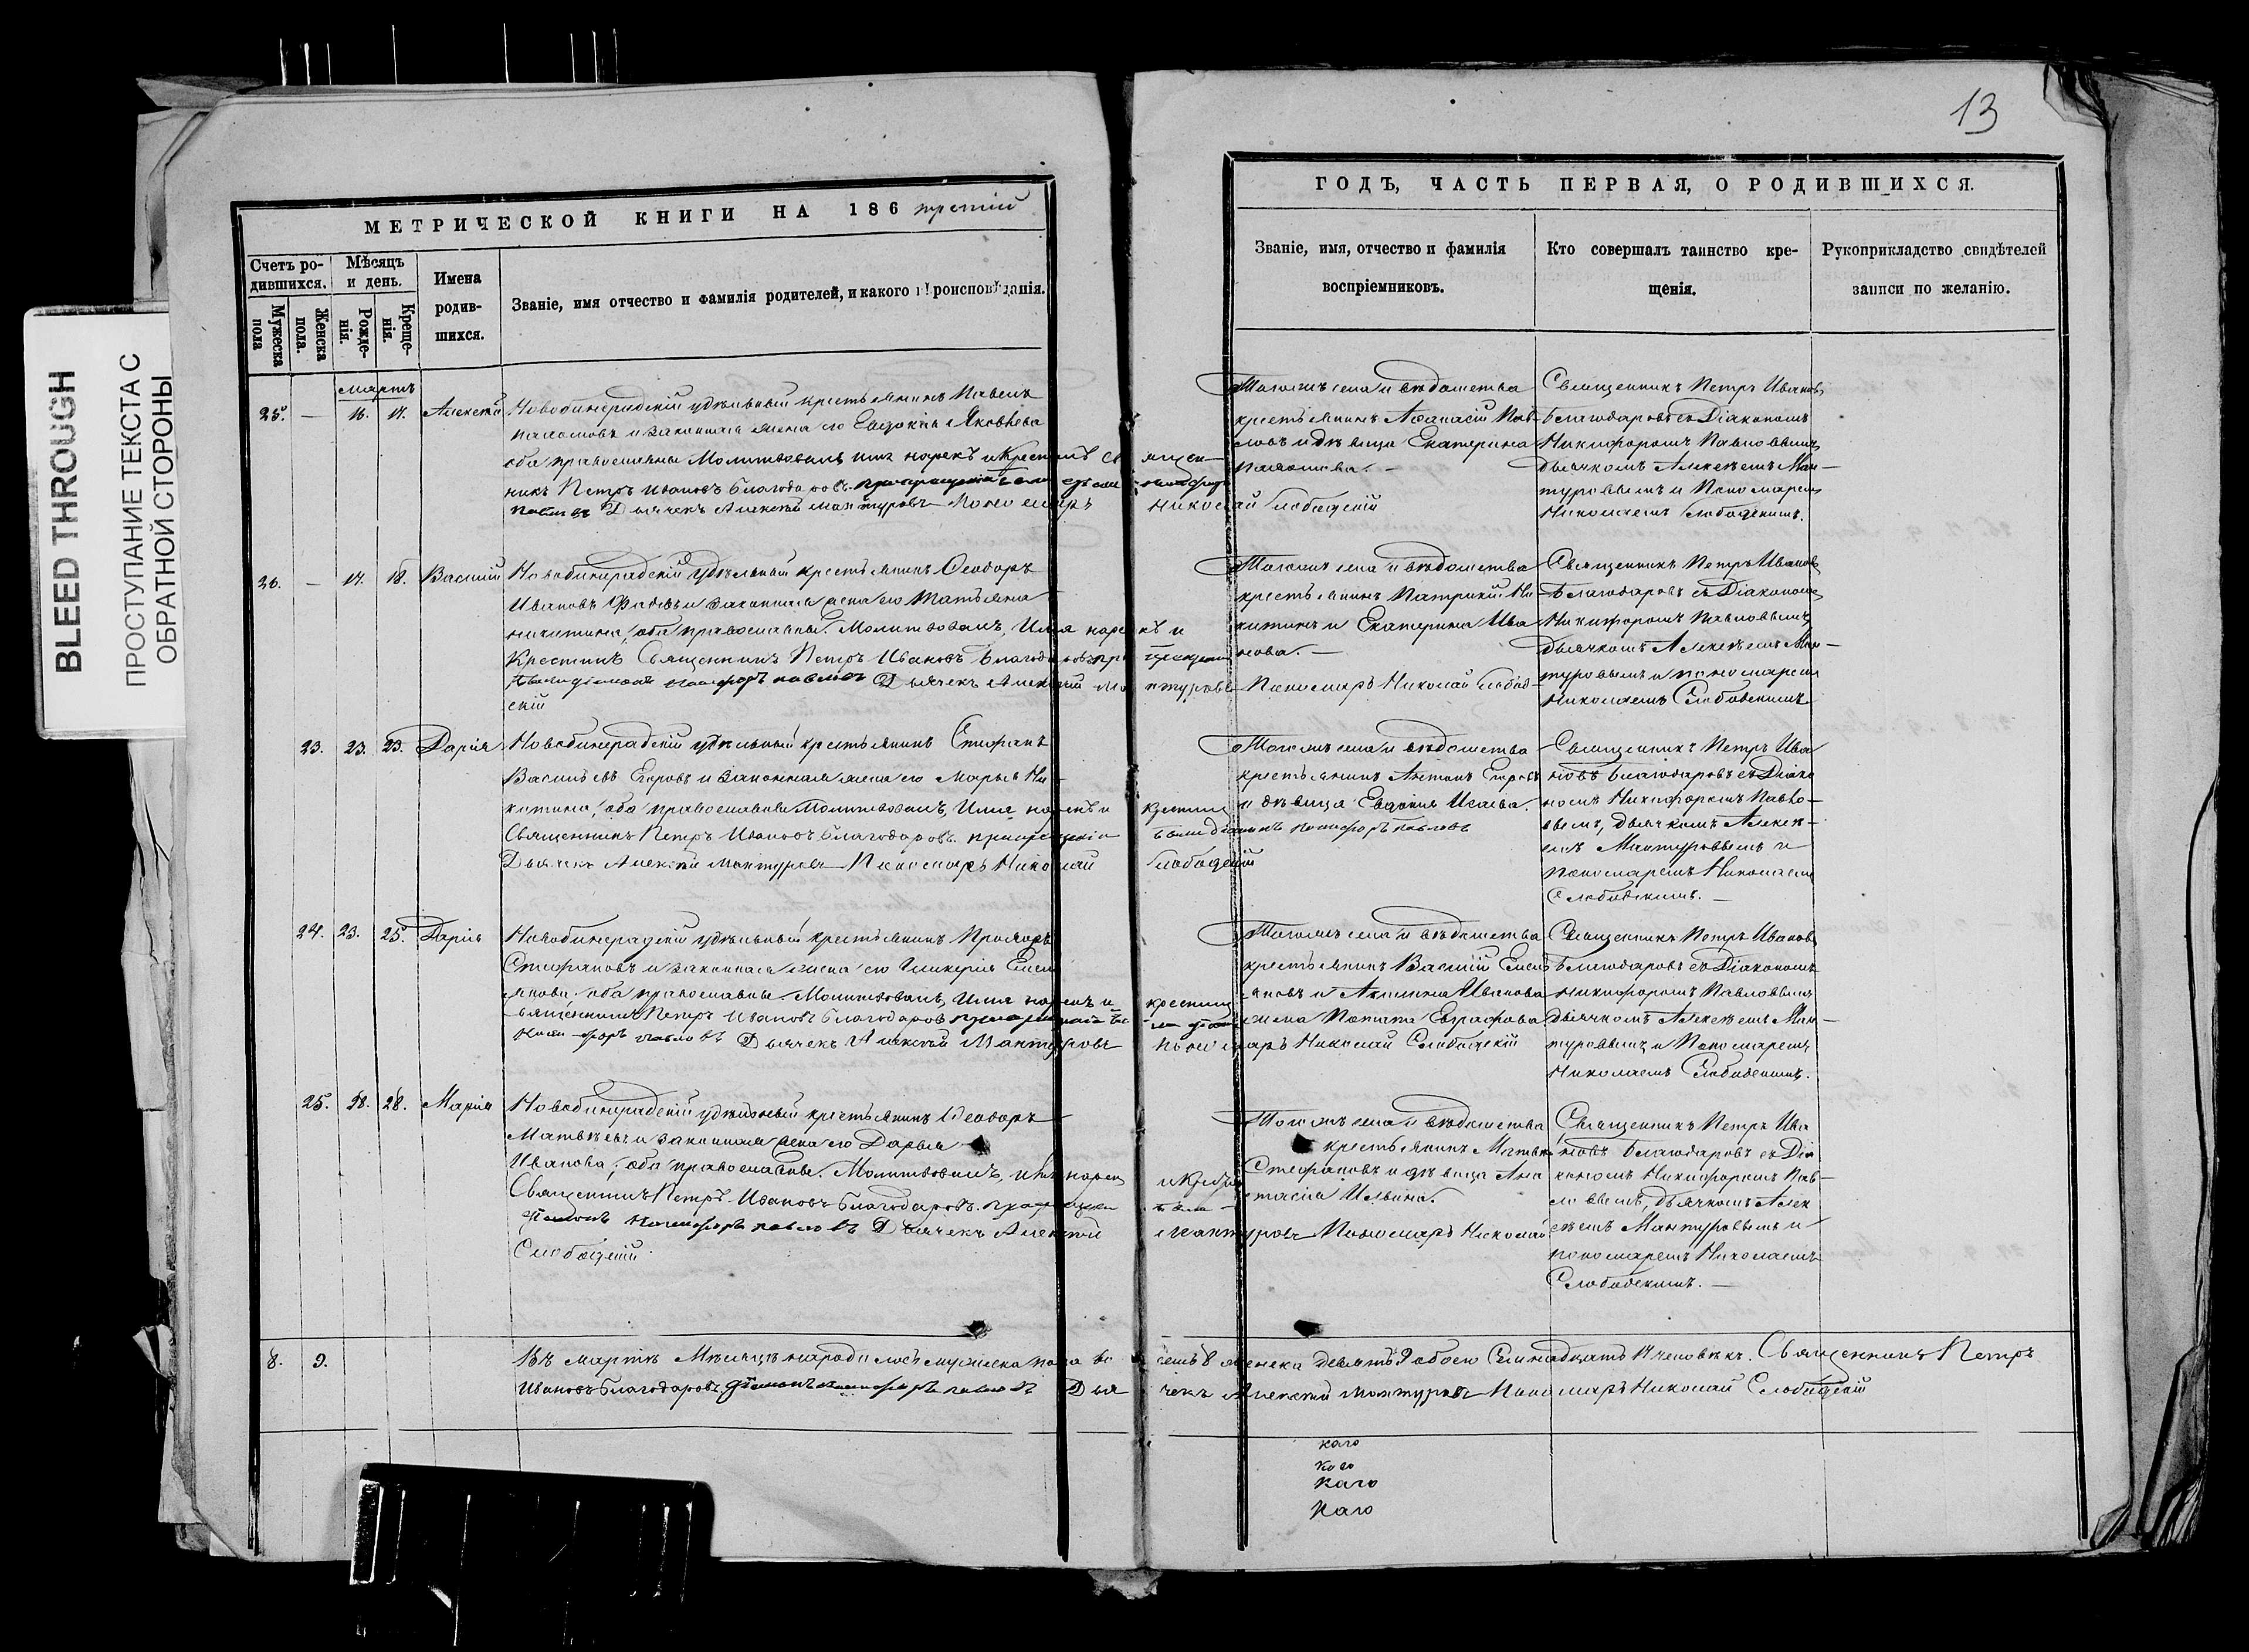 13
МЕТРИЧЕСКОЙ КНИГИ НА 186 третій
ГОДЪ, ЧАСТЬ ПЕРВАЯ, О РОДИВШИХСЯ.
Счетъ ро-
дившихся.
Мужеска
пола
Женска
пола.
Мѣсяцъ
и день.
Рожде-
нія.
Креще-
нія.
Имена
родив-
шихся.
Званіе, имя отчество и фамилія родителей, и какого вѣроисповѣданія.
Званіе, имя, отчество и фамилія
воспріемниковъ.
Кто совершалъ таинство кре-
щенія.
Рукоприкладство свидѣтелей
записи по желанію.
мартъ
25. — 16. 17. Алексѣй
Новобинарадскій удѣльный крестьянинъ Павелъ
и законная жена его Евдокія Яковлева
оба православны Молитвовалъ имя нарекъ и Крестилъ священ-
никъ Петръ Ивановъ Благодаровъ при крещеніи
Павловъ Дьячекъ Алексѣй Мантуровъ Пономарь Николай Слободскій
Тогожъ села и вѣдомства
крестьянинъ Афанасій Пав-
ловъ и дѣвица Екатерина
Священникъ Петръ Ивановъ
Благодаровъ съ Діакономъ
Никифоромъ Павловымъ
дьячкомъ Алексѣемъ Ман-
туровымъ и Пономаремъ
Николаемъ Слободскимъ.
26. — 17. 18. Василій
Новобинарадскій удѣльный крестьянинъ Ѳеодоръ
Ивановъ и законная жена его Татьяна
никитина, оба православны. Молитвовалъ, Имя нарекъ и
Крестилъ Священникъ Петръ Ивановъ Благодаровъ при крещеніи
были діаконъ Никифоръ павловъ Дьячекъ Алексѣй Мантуровъ Пономарь Николай Слобод-
скій
Тогожъ села и вѣдомства
крестьянинъ Патрикій Ни-
китинъ и Екатерина Ива
нова. —
Священникъ Петръ Ивановъ
Благодаровъ съ Діакономъ
Никифоромъ Павловымъ,
дьячкомъ Алексѣемъ Ман-
туровымъ и пономаремъ
Николаемъ Слободскимъ
23. 23. 23. Дарія
Новобинарадскій удѣльный крестьянинъ Стефанъ
Васильевъ Егоровъ и законная жена его Марья Ни-
китина, оба православны Молитвовалъ, Имя нарекъ и крестилъ
Священникъ Петръ Ивановъ Благодаровъ. при крещеніи были діаконъ никифоръ павловъ
Дьячекъ Алексѣй Мантуровъ Пономарь Николай Слободскій
Тогожъ села и вѣдомства
крестьянинъ Антонъ Егоровъ
и дѣвица Евдокія Исаева.
Священникъ Петръ Ива
новъ Благодаровъ съ Діако
номъ Никифоромъ Павло-
вымъ, дьячкомъ Алексѣ-
емъ Мантуровымъ и
пономаремъ Николаемъ
Слободскимъ. —
24. 23. 25. Дарія
Новобинарадскій удѣльный крестьянинъ Прохоръ
Стефановъ и законная жена его Гликерія Емель
янова, оба православны. Молитвовалъ, Имя нарекъ и крестилъ
священникъ Петръ Ивановъ Благодаровъ
никифоръ павловъ Дьячекъ Алексѣй Мантуровъ Пономарь Николай Слободскій
Тогожъ села и вѣдомства
крестьянинъ Василій Емель
яновъ и Акилина Иванова
жена Евграфова
Священникъ Петръ Ивановъ
Благодаровъ съ Діакономъ
Никифоромъ Павловымъ
дьячкомъ Алексѣемъ Ман-
туровымъ и Пономаремъ
Николаемъ Слободскимъ.
25. 28. 28. Марія
Новобинарадскій удѣльный крестьянинъ Ѳеодоръ
Матвѣевъ и законная жена его Дарья
Иванова, оба православны. Молитвовалъ, имя нарекъ
Священникъ Петръ Ивановъ Благодаровъ.
діаконъ никифоръ павловъ Дьячекъ Алексѣй Мантуровъ Пономарь Николай
Слободскій
Тогожъ села и вѣдомства
крестьянинъ Матвѣй
Стефановъ и дѣвица Ана
стасія Ильина.
Священникъ Петръ Ива
новъ Благодаровъ съ Діа
кономъ Никифоромъ Пав-
ловымъ, дьячкомъ Алек
сѣемъ Мантуровымъ и
пономаремъ Николаемъ
Слободскимъ. —
8. 9. Въ мартѣ Мѣсяцѣ народилось мужеска пола восемь 8 женска девять 9 обоего Семнадцать 17 человѣкъ. Священникъ Петръ
Ивановъ Благодаровъ діаконъ никифоръ павловъ Дьячекъ Алексѣй Мантуровъ Пономарь Николай Слободскій
каго
каго
каго
каго
BLEED THROUGH
ПРОСТУПАНИЕ ТЕКСТА С
ОБРАТНОЙ СТОРОНЫ